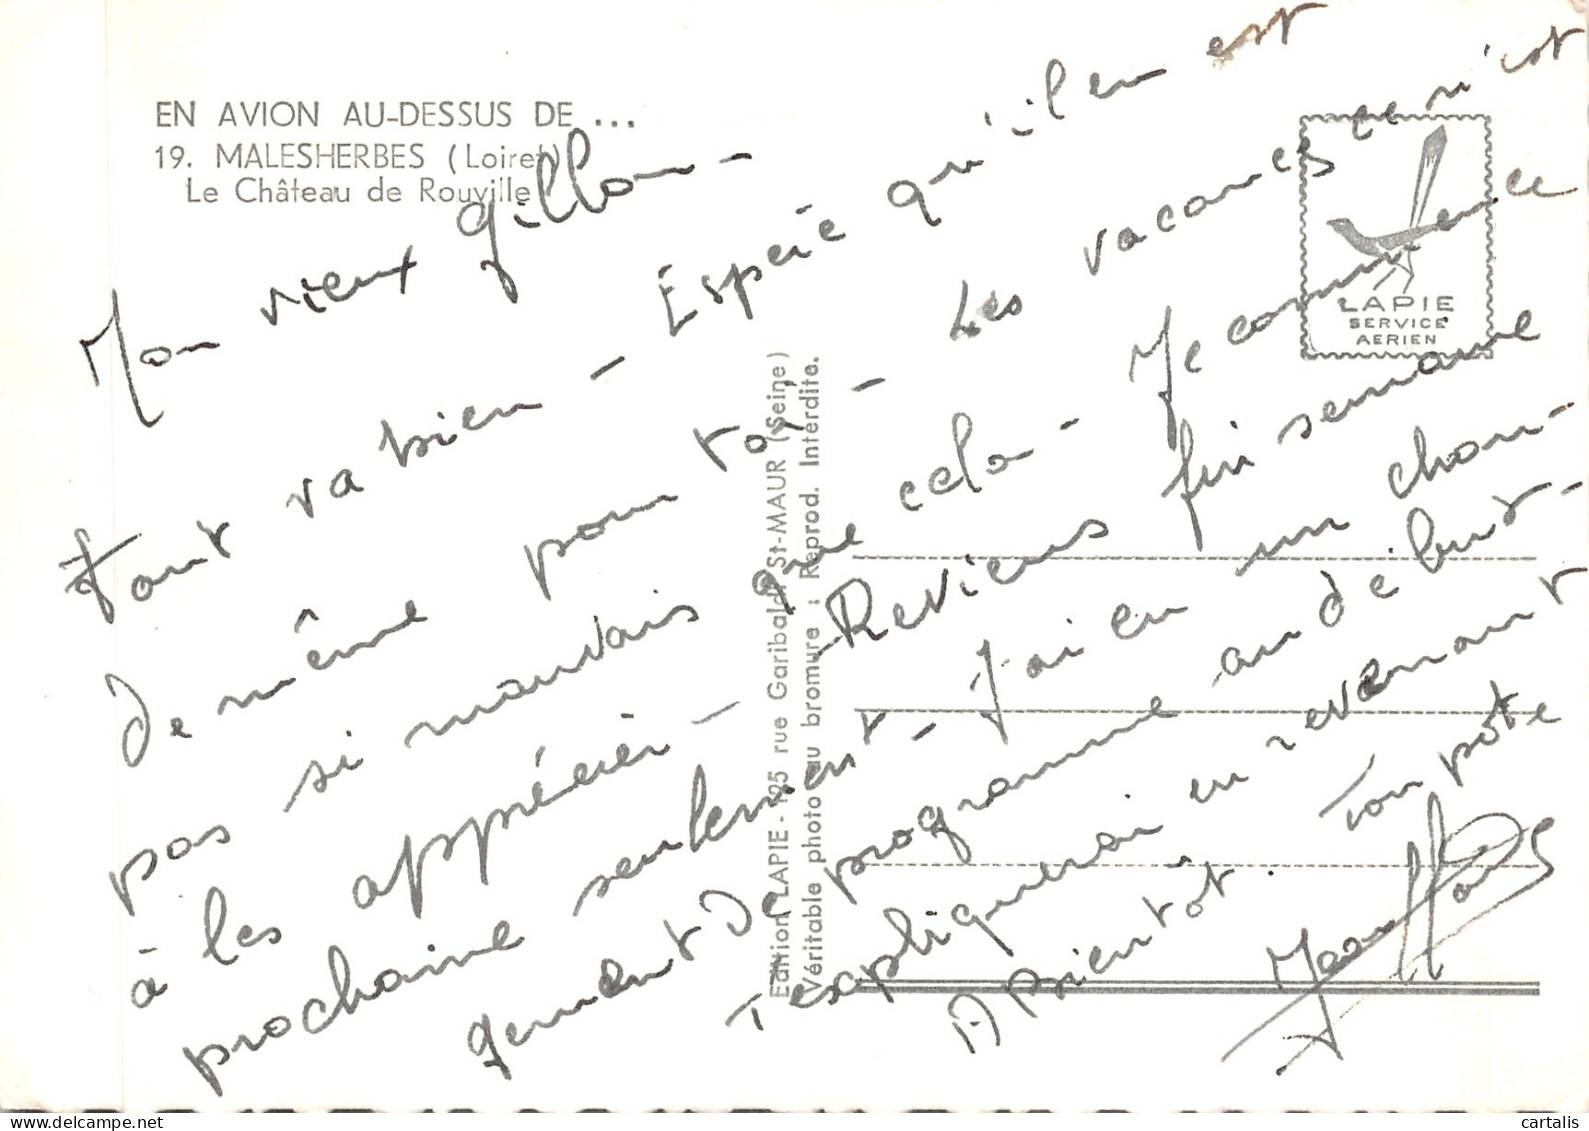 EN AVION AU-DESSUS DE ...
19. MALESHERBES (Loiret)
Le Château de Rouville
LAPIE
SERVICE
AERIEN
Edition LAPIE - 125 rue Garibaldi St-MAUR (Seine)
Véritable photo au bromure : Reprod. Interdite.
Mon vieux Gillou -
Tout va bien - Espère qu'il en est
de même pour toi - Les vacances ce n'est
pas si mauvais que cela - Je commence
à les apprécier - Reviens fin semaine
prochaine seulement - J'ai eu un chan-
gement de programme au début -
T'expliquerai en revenant
A bientôt. Ton pote
cartalis